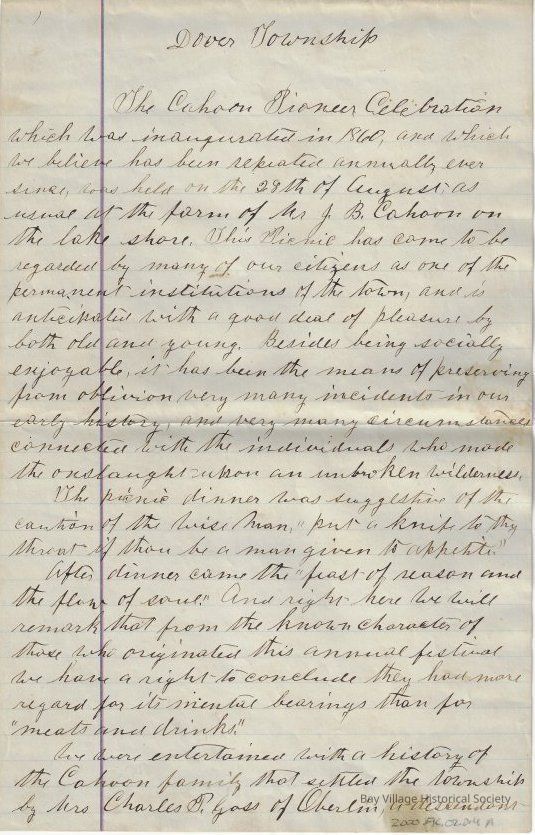 1
Dover Township
The Cahoon Pioneer Celebration
which was inaugurated in 1860, and which
we believe has been repeated annually ever
since, was held on the 29th of August, as
usual at the farm of Mr J. B. Cahoon on
the lake shore. This Picnic has come to be
regarded by many of our citizens as one of the
permanent institutions of the town, and is
anticipated with a good deal of pleasure by
both old and young. Besides being socially
enjoyable, it has been the means of preserving
from oblivion very many incidents in our
early history, and very many circumstances
connected with the individuals who made
the onslaught upon an unbroken wilderness.
The picnic dinner was suggestive of the
caution of the Wise Man, "put a knife to thy
throat if thou be a man given to appetite."
After dinner came the "feast of reason and
the flow of soul." And right here we will
remark that from the known character of
those who originated this annual festival
we have a right to conclude they had more
regard for its mental bearings than for
"meats and drinks."
We were entertained with a history of
the Cahoon family that settled the township
by Mrs Charles P. Goss of Oberlin, a
Bay Village Historical Society